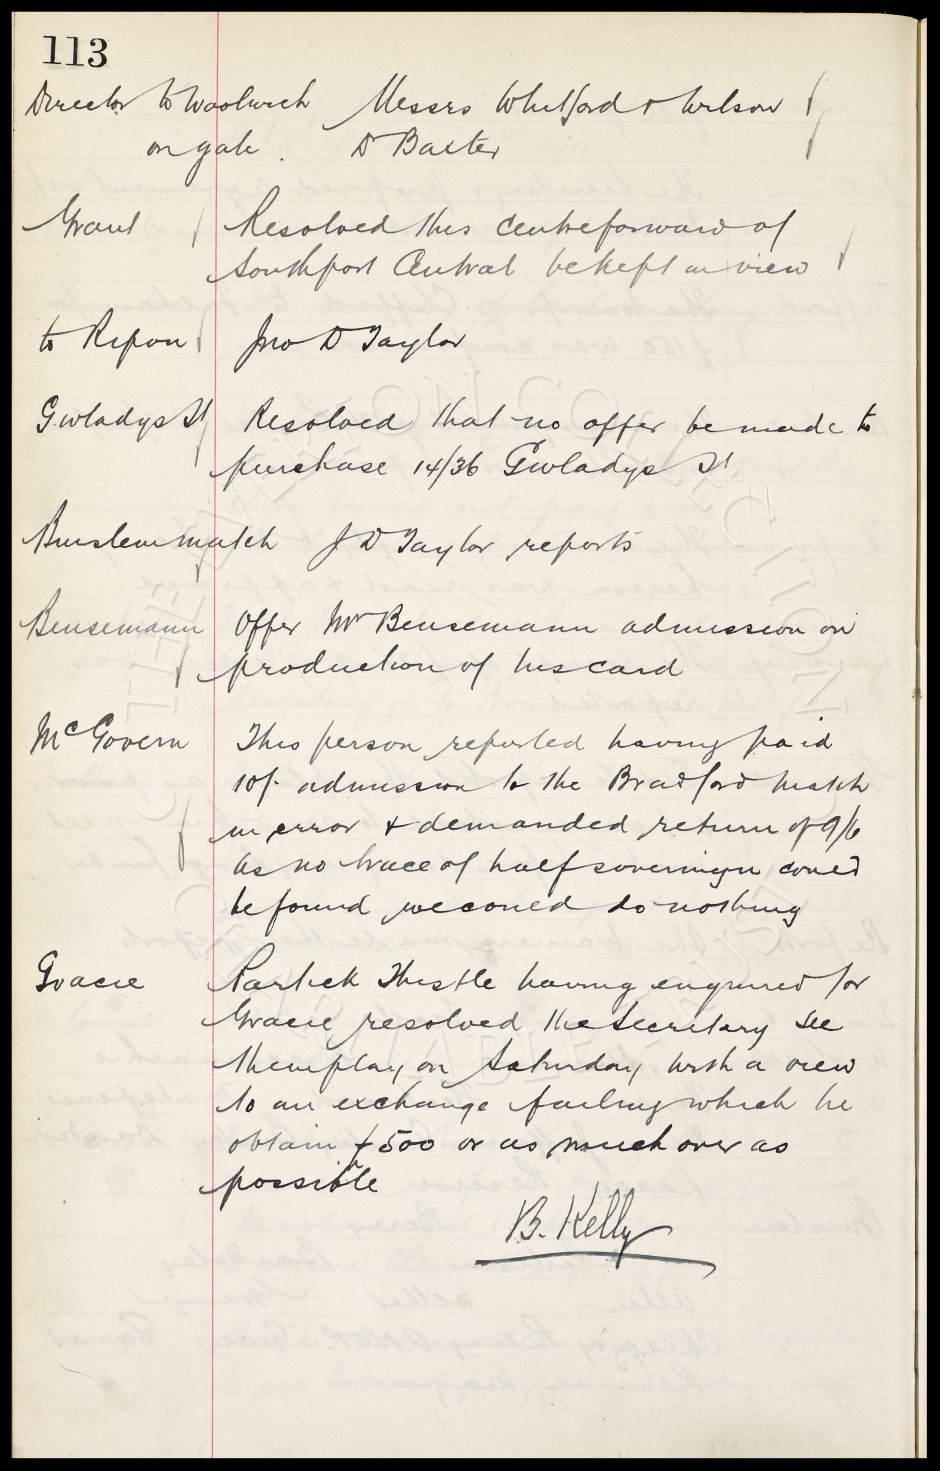 113
Director to Woolwich Messrs Whitford & Wilson
on gate. Dr Baxter
Grant Resolved this centreforward of
Southport Central be kept in view
to Ripon Jno D Taylor
Gwladys St Resolved that no offer be made to
purchase 14/36 Gwladys St
Burslem match J D Taylor reports
Bensemann Offer Mr Bensemann admission on
production of his card
McGovern This person reported having paid
10/- admission to the Bradford match
in error & demanded return of 9/6
As no trace of half sovereign could
be found we could do nothing
Gracie Partick Thistle having enquired for
Gracie resolved the Secretary see
them play on Saturday with a view
to an exchange failing which he
obtain £500 or as much over as
possible
B. Kelly